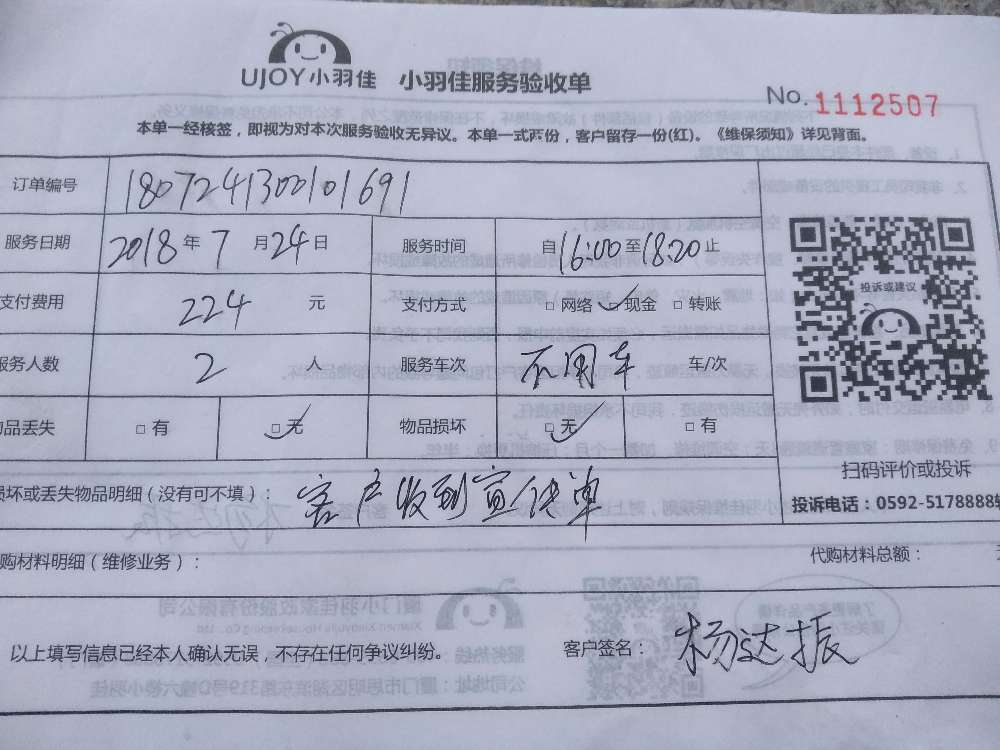 UJOY小羽佳 小羽佳服务验收单
No. 1112507
本单一经核签，即视为对本次服务验收无异议。本单一式两份，客户留存一份(红)。《维保须知》详见背面。
订单编号 180724130010 1691
服务日期 2018年7月24日 服务时间 自16:00至18:20止
支付费用 224元 支付方式 □ 网络 ✓现金 □ 转账
服务人数 2人 服务车次 不用车 车/次
物品丢失 □ 有 □✓无 物品损坏 □✓无 □ 有
投诉或建议
扫码评价或投诉
投诉电话：0592-5178888转
损坏或丢失物品明细（没有可不填）：客户收到宣传单
购材料明细（维修业务）： 代购材料总额：
以上填写信息已经本人确认无误，不存在任何争议纠纷。 客户签名：杨达振